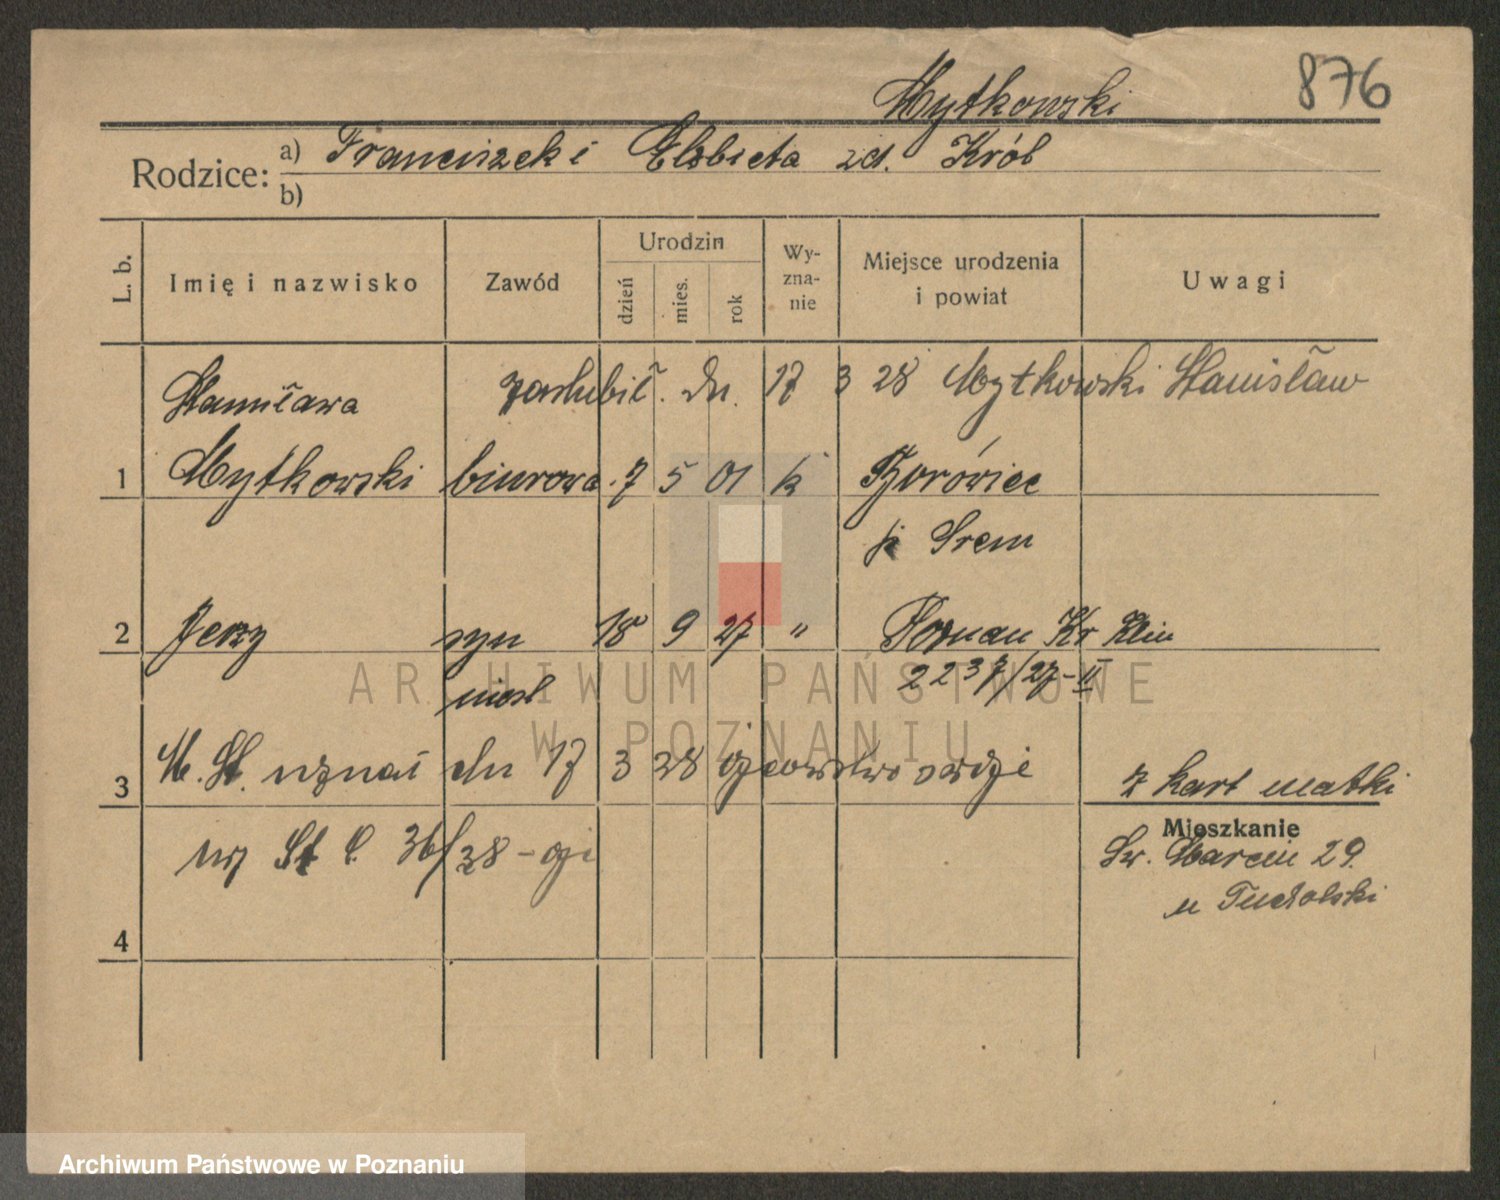 876
Mytkowski
Rodzice: a) Franciszek i Elżbieta zd. Król
b)
L. b. Imię i nazwisko Zawód Urodzin dzień mies. rok Wy-zna-nie Miejsce urodzenia i powiat Uwagi
Stanisława zaślubił. dn. 17 3 28 Mytkowski Stanisław
1 Mytkowski biurowa 7 5 01 k
p. Srem
2 Jerzy syn 18 9 27 " Poznan Kr Klin
nieśl 2237/27-II
3 M. St. uznał dn 17 3 28 ojcowstwo swoje z kart matki
Mieszkanie
St 36/28 Sw. Marcin 29.
u Tucholski
4
ARCHIWUM PAŃSTWOWE
W POZNANIU
Archiwum Państwowe w Poznaniu